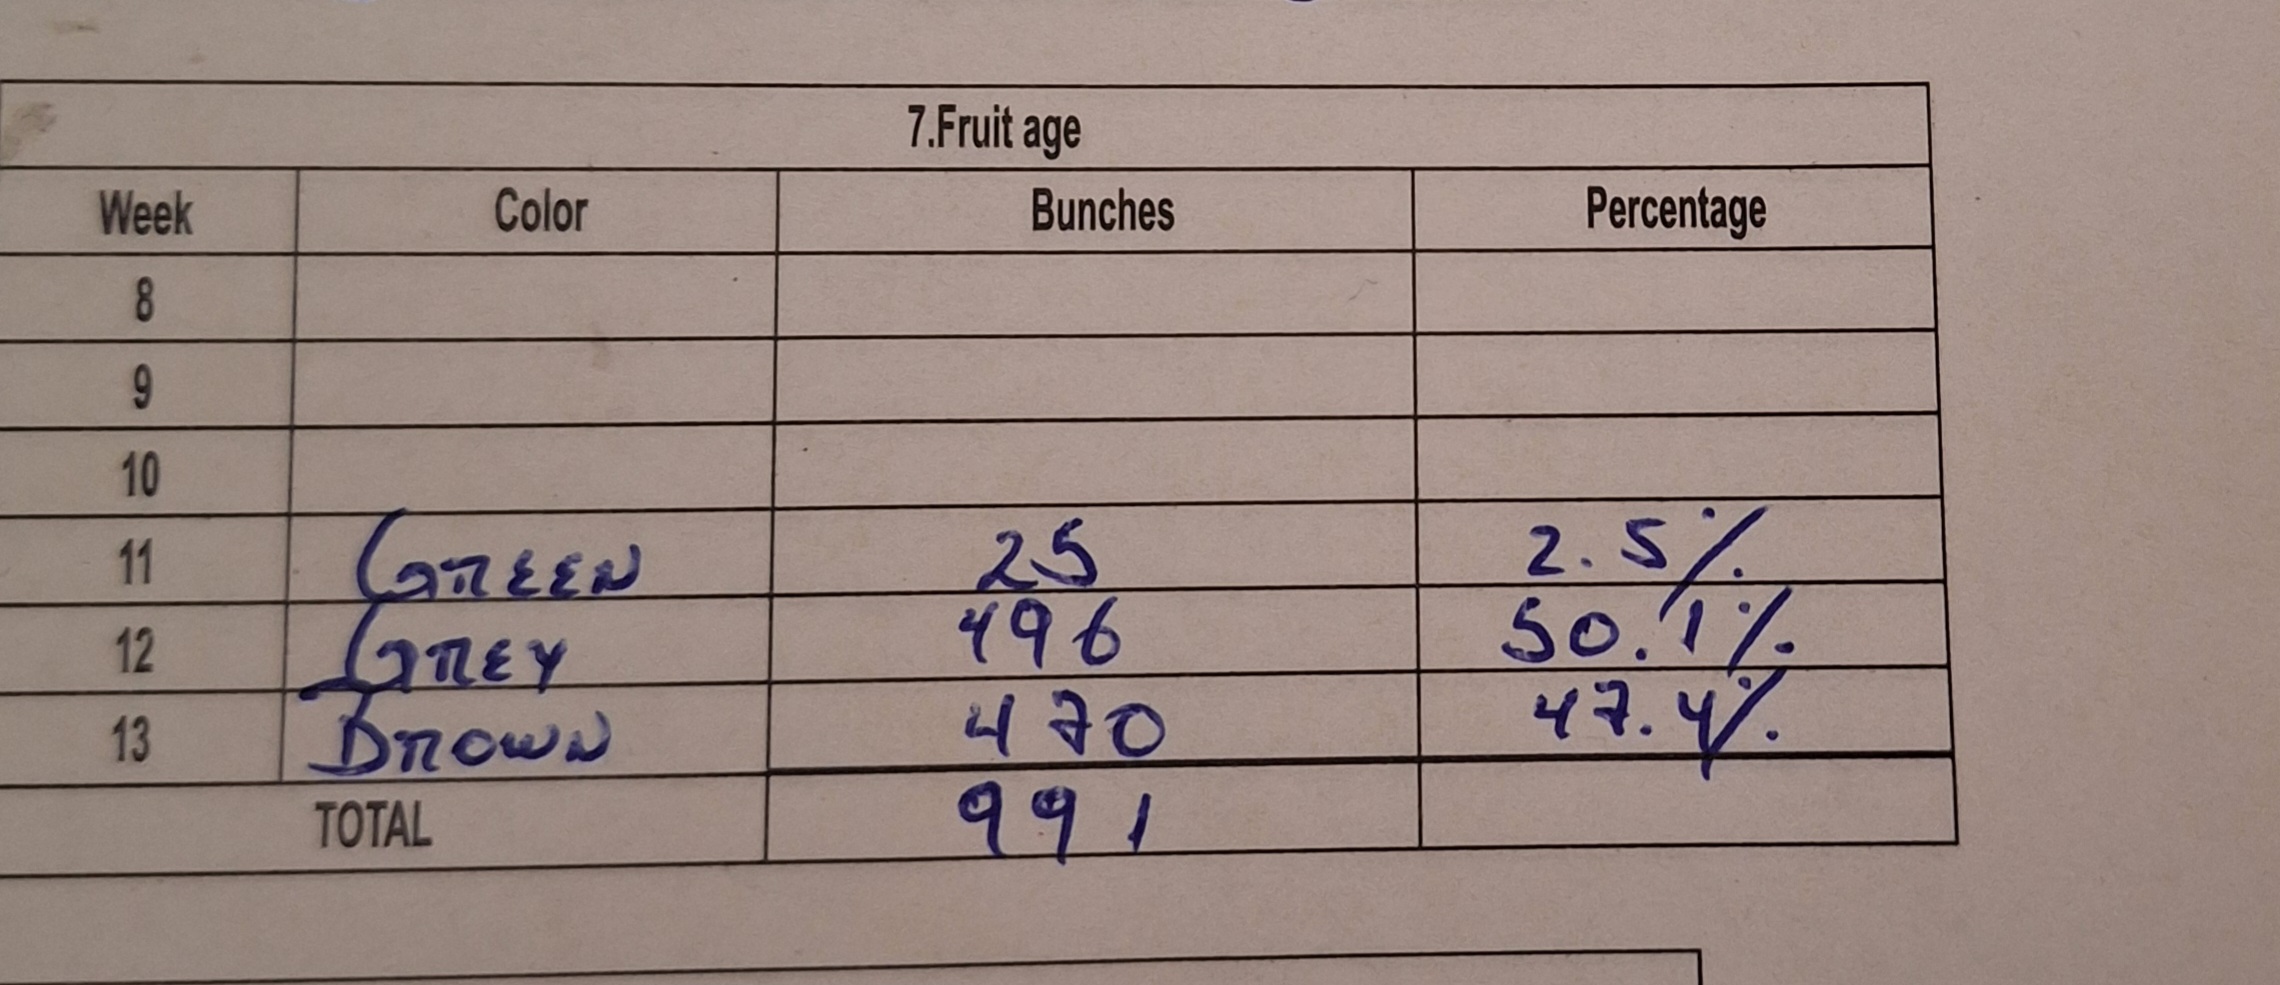 7.Fruit age
Week Color Bunches Percentage
8
9
10
11 GREEN 25 2.5%
12 GREY 496 50.1%
13 BROWN 470 47.4%
TOTAL 991